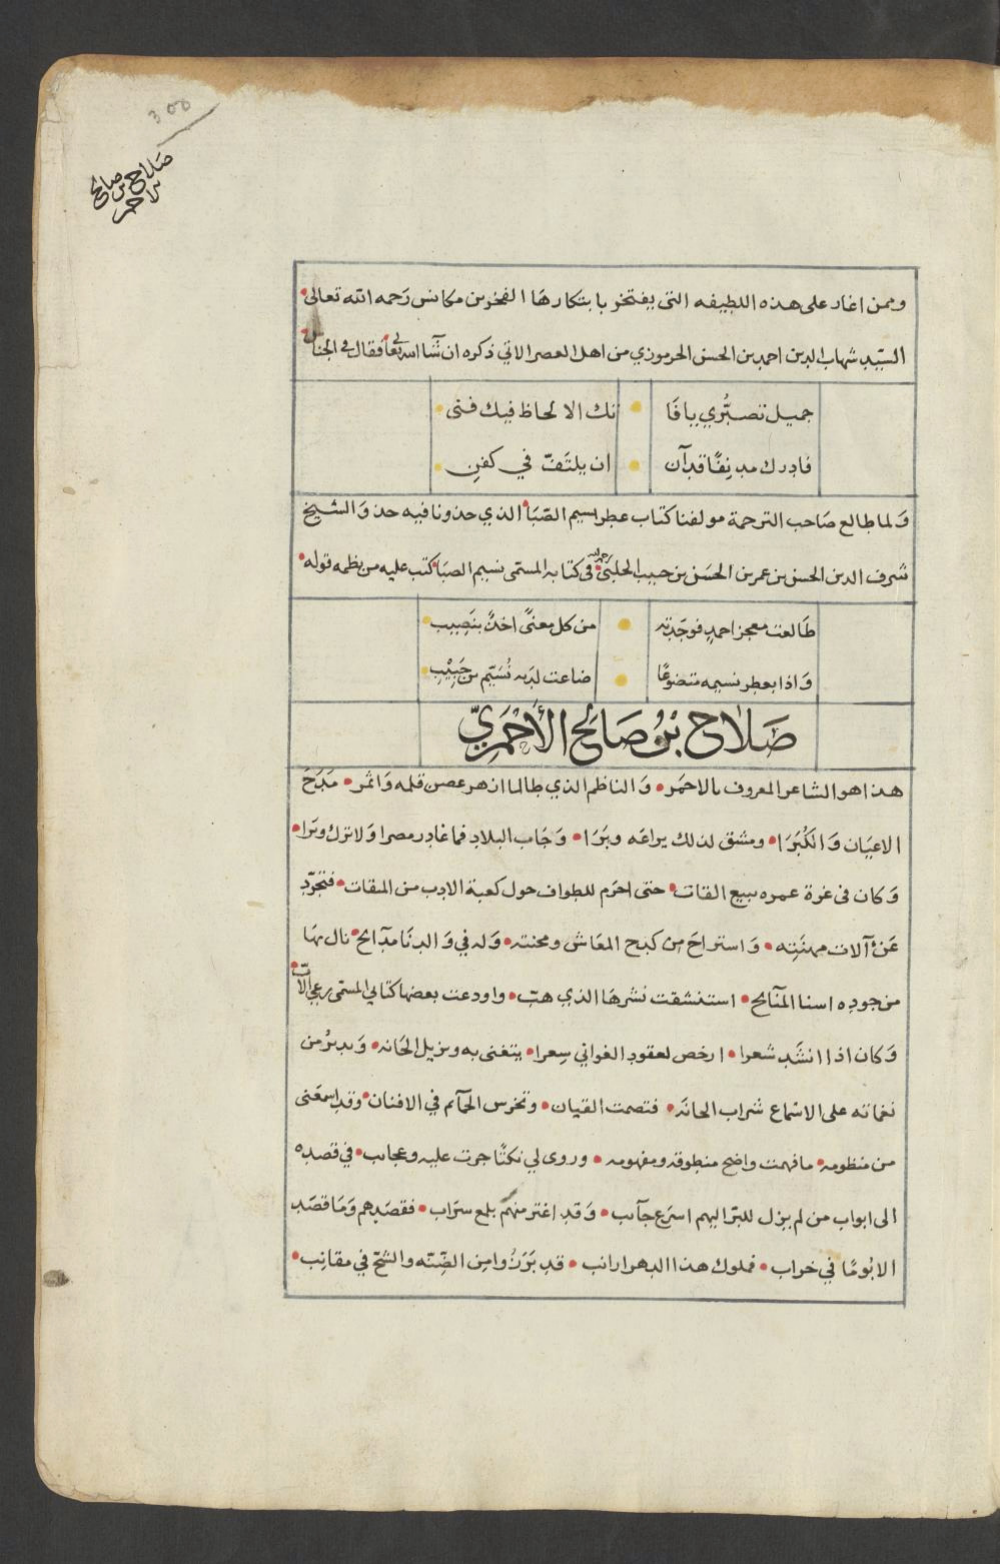 ٣٥٥
صَلاح بن صالح
الاحمر
وممن اغار على هذه اللطيفه التى يفتخر بابتكارهَا الفخر بن مكانس رَحمه الله تعالى
السيّد شهاب الدين احمد بن الحسن الجرموزي من اهل العصر الاتي ذكره ان شآ الله تعالى فقال في الجناس
جميل تصبُّري يا فَا   تك الالحاظ فيك فنى
فادرك مدنِفًا قد آن   ان يلتَفّ في كفنِ
وَلما طالع صَاحب الترجمة مولفنا كتاب عطر نسيم الصّبَا الذي حذونا فيه حذوَ الشيخ
شرف الدين الحسن بن عمر بن الحسَن بن حبيب الحلبى رحمه الله فى كتابه المسمى نسيم الصبَا كتب عليه من نظمه قوله
طَالعت معجز احمدٍ فوجَدته   من كل معنًى اخذٌ بنَصِيبِ
وَاذا بعطر نسيمه متضوعًا   ضاعت لديه نُسَيّم بن حَبِيْبِ
صَلَاح بْنُ صَالحٍ الأَحْمَرِيّ
هذا هو الشاعر المعروف بالاحمَر وَالناظم الذي طالما ازهر غصن قلمه وَاثمر مَدَحَ
الاعيَان وَالكُبَرَا ومشق لذلك يراعَه وبَرَا وَجَاب البلاد فما غادر مصرا وَلا ترك وبَرا
وَكان فى غرة عمره يبيع القات حتى احرَم للطواف حول كعبة الادب من الميقات فتجرّد
عَنْ آلات مهنَتِه وَاستراحَ من كدح المعَاش ومحنته وَله في وَالدنَا مدَآئح نال بهَا
من جوده اسنا المنَآئح استنشقت نشرهَا الذي هبّ واودعت بعضها كتابي المسمى
وَكان اذا انشَد شعرا ارخص لعقود الغواني سِعرا يتغنى به ويزيل الحَانه وَيديرُ من
نغماته على الاسْماع شراب الحانَه فتصمت القيان وتخرس الحَمآئم في الافنان وقد اسمعَنى
من منظومه ما فهمت واضح منطوقه ومفهومه وروى لي نكتًا جرت عليه وعجائب في قصده
الى ابواب من لم يزل للبرّ اليهم اسرَع جَآئب وَقد اغتر منهم بلمع سرَاب فقصَدهم وَمَا قصَد
الا بُومًا في خراب فملوك هذا الدهر ارانب قد بَرَزُوا من الضِّنّه والشحّ في مقانِب